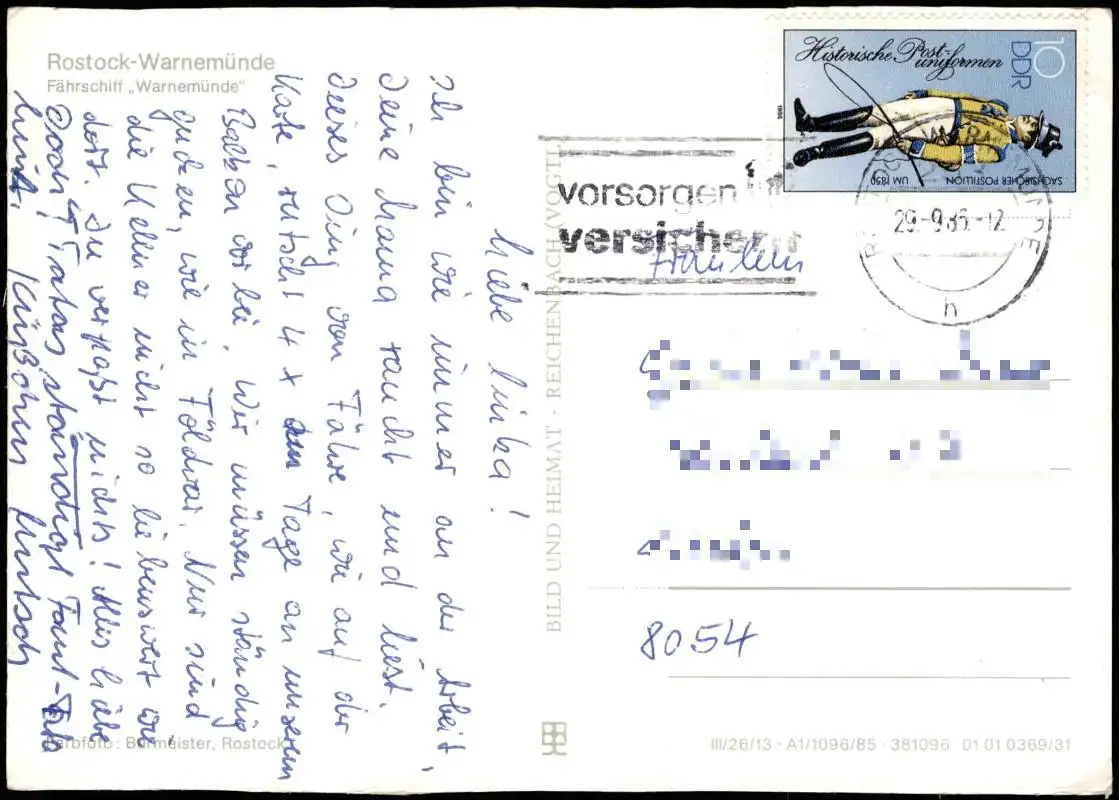 Rostock-Warnemünde
Fährschiff „Warnemünde“
Liebe Linka!
Ich bin wie immer an der Arbeit,
Deine Mama raucht und liest.
Dieses Ding von Fähre, wie auf der
Karte, rutscht 4 x Tage an unserem
Balkon vorbei. Wir müssen ständig
gucken, wie in Földvar. Nur sind
die Kellner nicht so liebenswert wie
dort. Du verpaßt nichts! Alles Liebe
Doon! Tratas ständiges Faut-
Küßchen Mutsch
BILD UND HEIMAT · REICHENBACH (VOGTL)
Historische Post-
uniformen
10
DDR
1986
SÄCHSISCHER POSTILLION UM 1850
vorsorgen
versichern
29.-9.86.-12
h
Fräulein
8054
Farbfoto: Burmeister, Rostock
III/26/13 · A1/1096/85 · 381096 01 01 0369/31